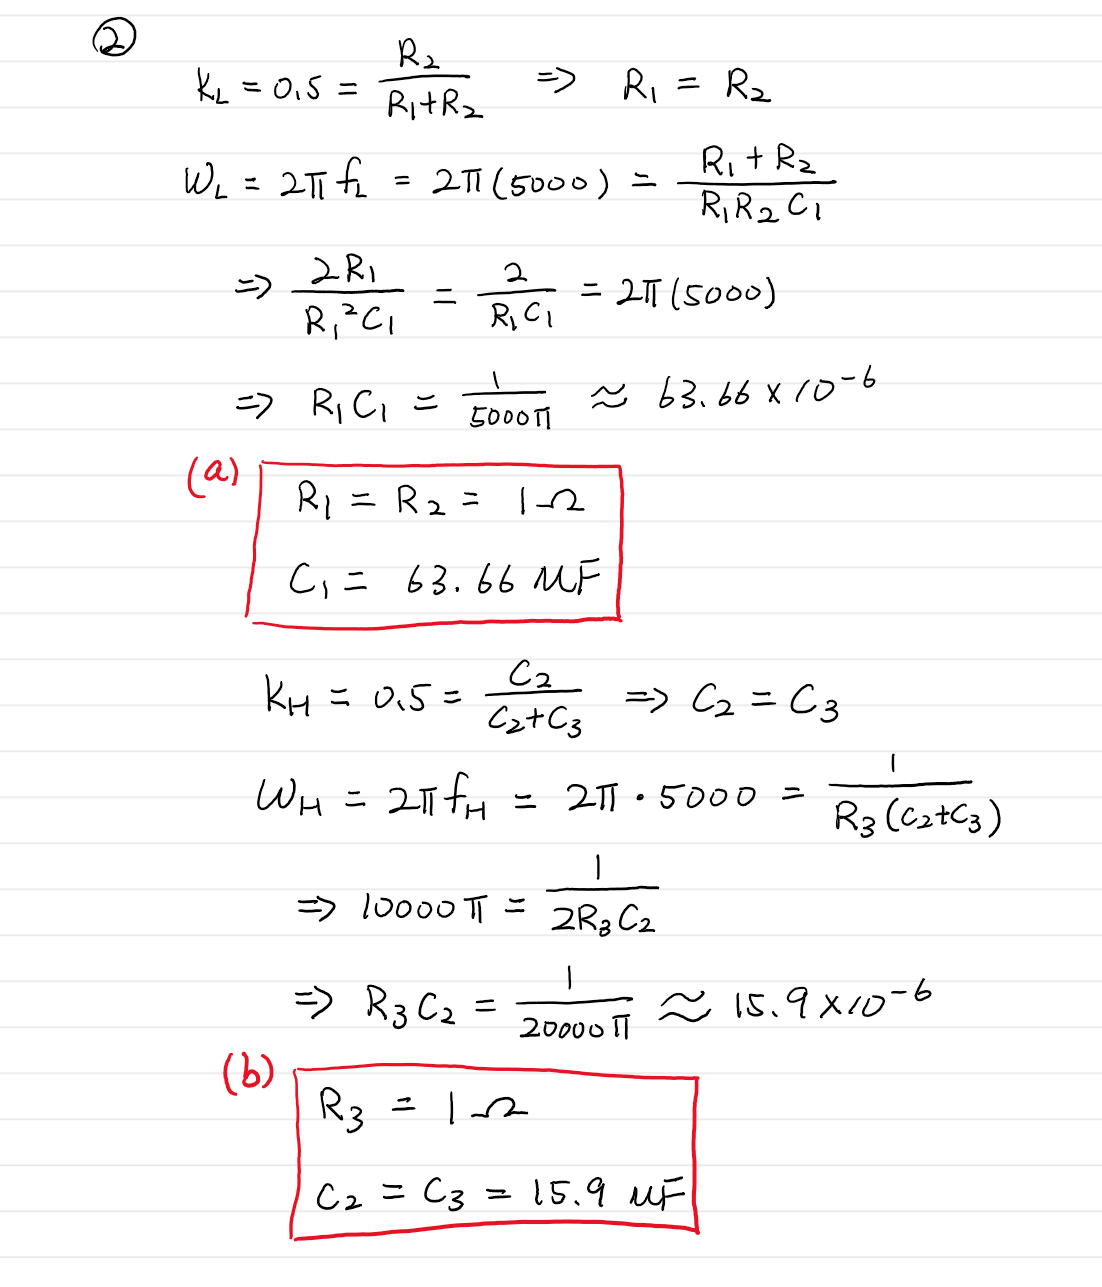 ②
K_L = 0.5 = R₂/(R₁+R₂) ⇒ R₁ = R₂
W_L = 2π f_L = 2π(5000) = (R₁+R₂)/(R₁R₂C₁)
⇒ 2R₁/(R₁²C₁) = 2/(R₁C₁) = 2π(5000)
⇒ R₁C₁ = 1/(5000π) ≈ 63.66 × 10⁻⁶
(a)
R₁ = R₂ = 1Ω
C₁ = 63.66 μF
K_H = 0.5 = C₂/(C₂+C₃) ⇒ C₂ = C₃
W_H = 2πf_H = 2π · 5000 = 1/(R₃(C₂+C₃))
⇒ 10000π = 1/(2R₃C₂)
⇒ R₃C₂ = 1/(20000π) ≈ 15.9 × 10⁻⁶
(b)
R₃ = 1Ω
C₂ = C₃ = 15.9 μF